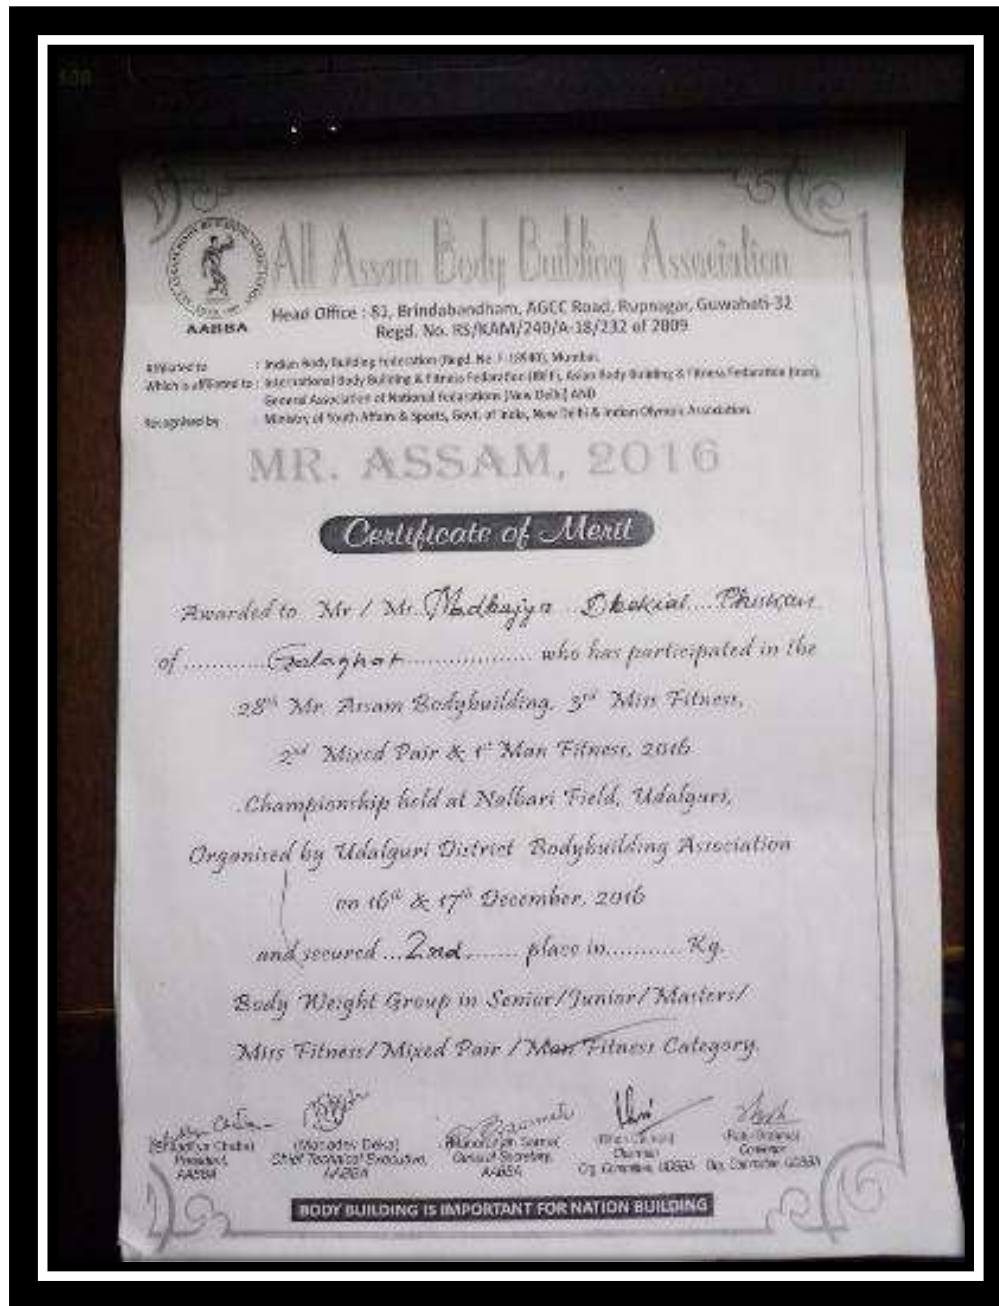 All Assam Body Building Association
AABBA
Head Office : 81, Brindabandham, AGCC Road, Rupnagar, Guwahati-32
Regd. No. RS/KAM/240/A-18/232 of 2009
Affiliated to : Indian Body Building Federation (Regd. No. F-18940), Mumbai.
Which is affiliated to : International Body Building & Fitness Federation (IBFF), Asian Body Building & Fitness Federation (Iran),
General Association of National Federations (New Delhi) AND
Recognised by : Ministry of Youth Affairs & Sports, Govt. of India, New Delhi & Indian Olympic Association.
MR. ASSAM, 2016
Certificate of Merit
Awarded to Mr / Ms. Madhajya Dhekial Phukan
of Golaghat who has participated in the
28th Mr. Assam Bodybuilding, 3rd Miss Fitness,
2nd Mixed Pair & 1st Man Fitness, 2016
Championship held at Nalbari Field, Udalguri,
Organised by Udalguri District Bodybuilding Association
on 16th & 17th December, 2016
and secured 2nd place in Kg.
Body Weight Group in Senior/Junior/Masters/
Miss Fitness/Mixed Pair /Man Fitness Category.
(Mahadev Deka)
President, AABBA
Chief Technical Executive, AABBA
General Secretary, AABBA
Chairman
Org. Committee, UDBBA
Convenor
Org. Committee, UDBBA
BODY BUILDING IS IMPORTANT FOR NATION BUILDING